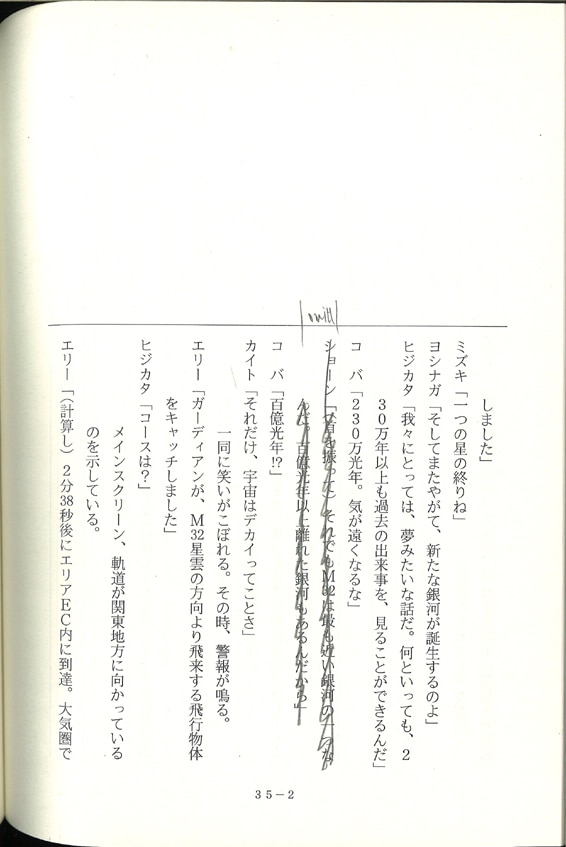 しました」
ミズキ「一つの星の終りね」
ヨシナガ「そしてまたやがて、新たな銀河が誕生するのよ」
ヒジカタ「我々にとっては、夢みたいな話だ。何といっても、２
３０万年以上も過去の出来事を、見ることができるんだ」
コ　バ「２３０万光年。気が遠くなるな」
ショーン「（首を振って）それでもＭ32は最も近い銀河の一つな
んだ。百億光年以上離れた銀河もあるんだから」
コ　バ「百億光年!?」
カイト「それだけ、宇宙はデカイってことさ」
一同に笑いがこぼれる。その時、警報が鳴る。
エリー「ガーディアンが、Ｍ32星雲の方向より飛来する飛行物体
をキャッチしました」
ヒジカタ「コースは？」
メインスクリーン、軌道が関東地方に向かっている
のを示している。
エリー「（計算し）２分38秒後にエリアＥＣ内に到達。大気圏で
３５－２